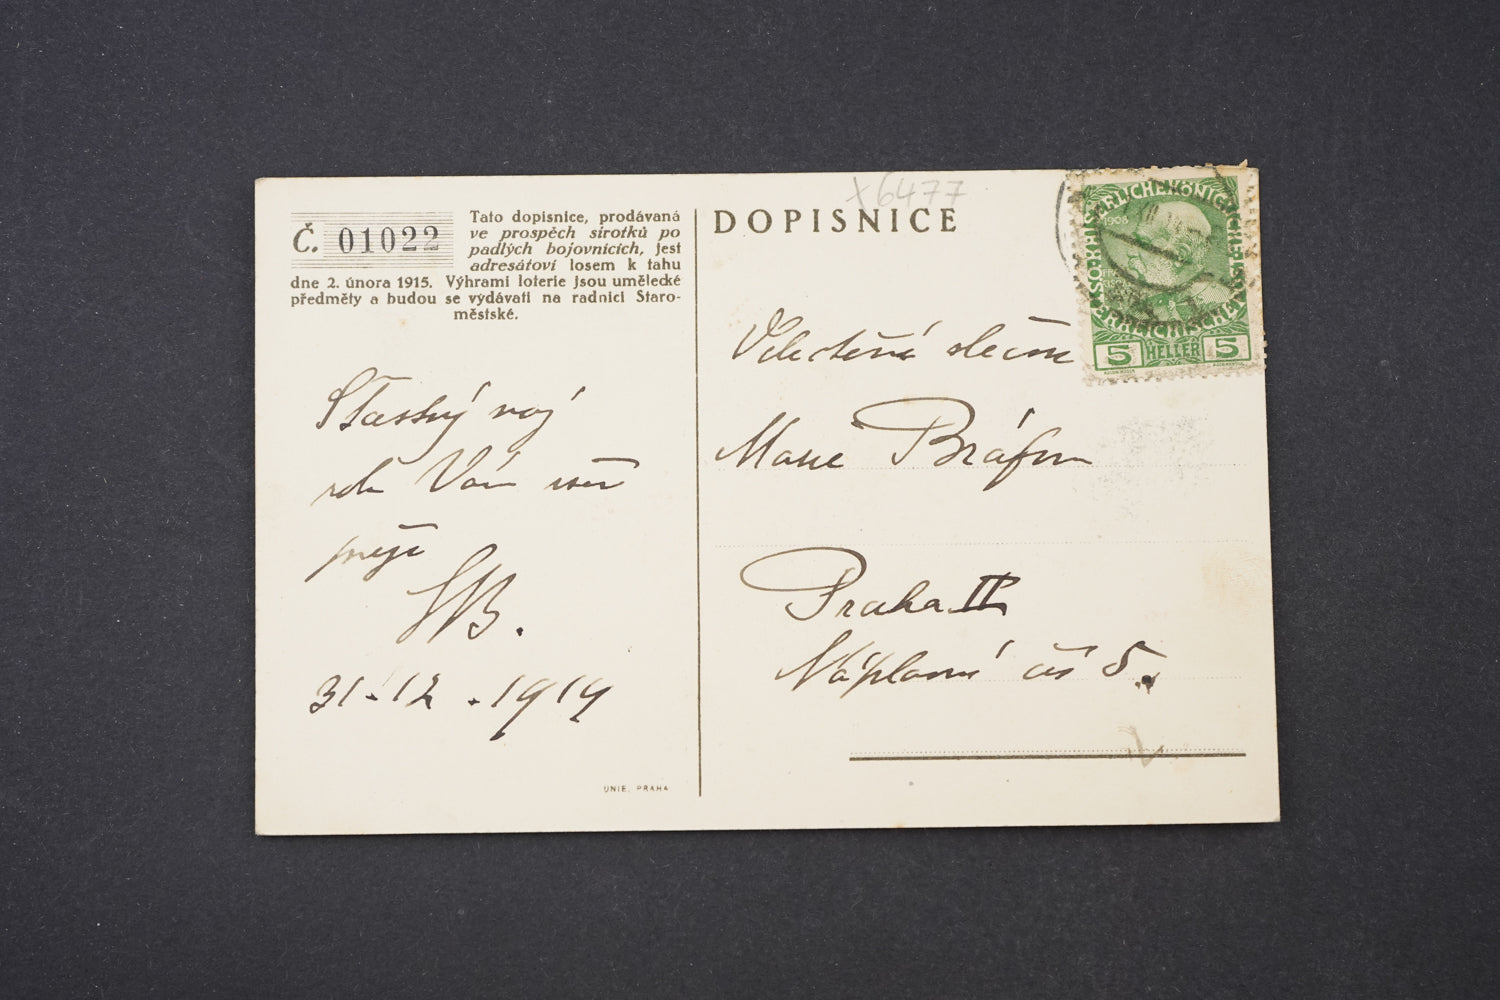 Č. 01022
Tato dopisnice, prodávaná
ve prospěch sirotků po
padlých bojovnících, jest
adresátovi losem k tahu
dne 2. února 1915. Výhrami loterie jsou umělecké
předměty a budou se vydávati na radnici Staro-
městské.
Šťastný nový
rok Vám všem
přeje
31·12·1914
UNIE, PRAHA
x6477
DOPISNICE
Velectěná slečna
Marie Bráfova
Praha II
Náplavní čís 5.
1908
5 HELLER 5